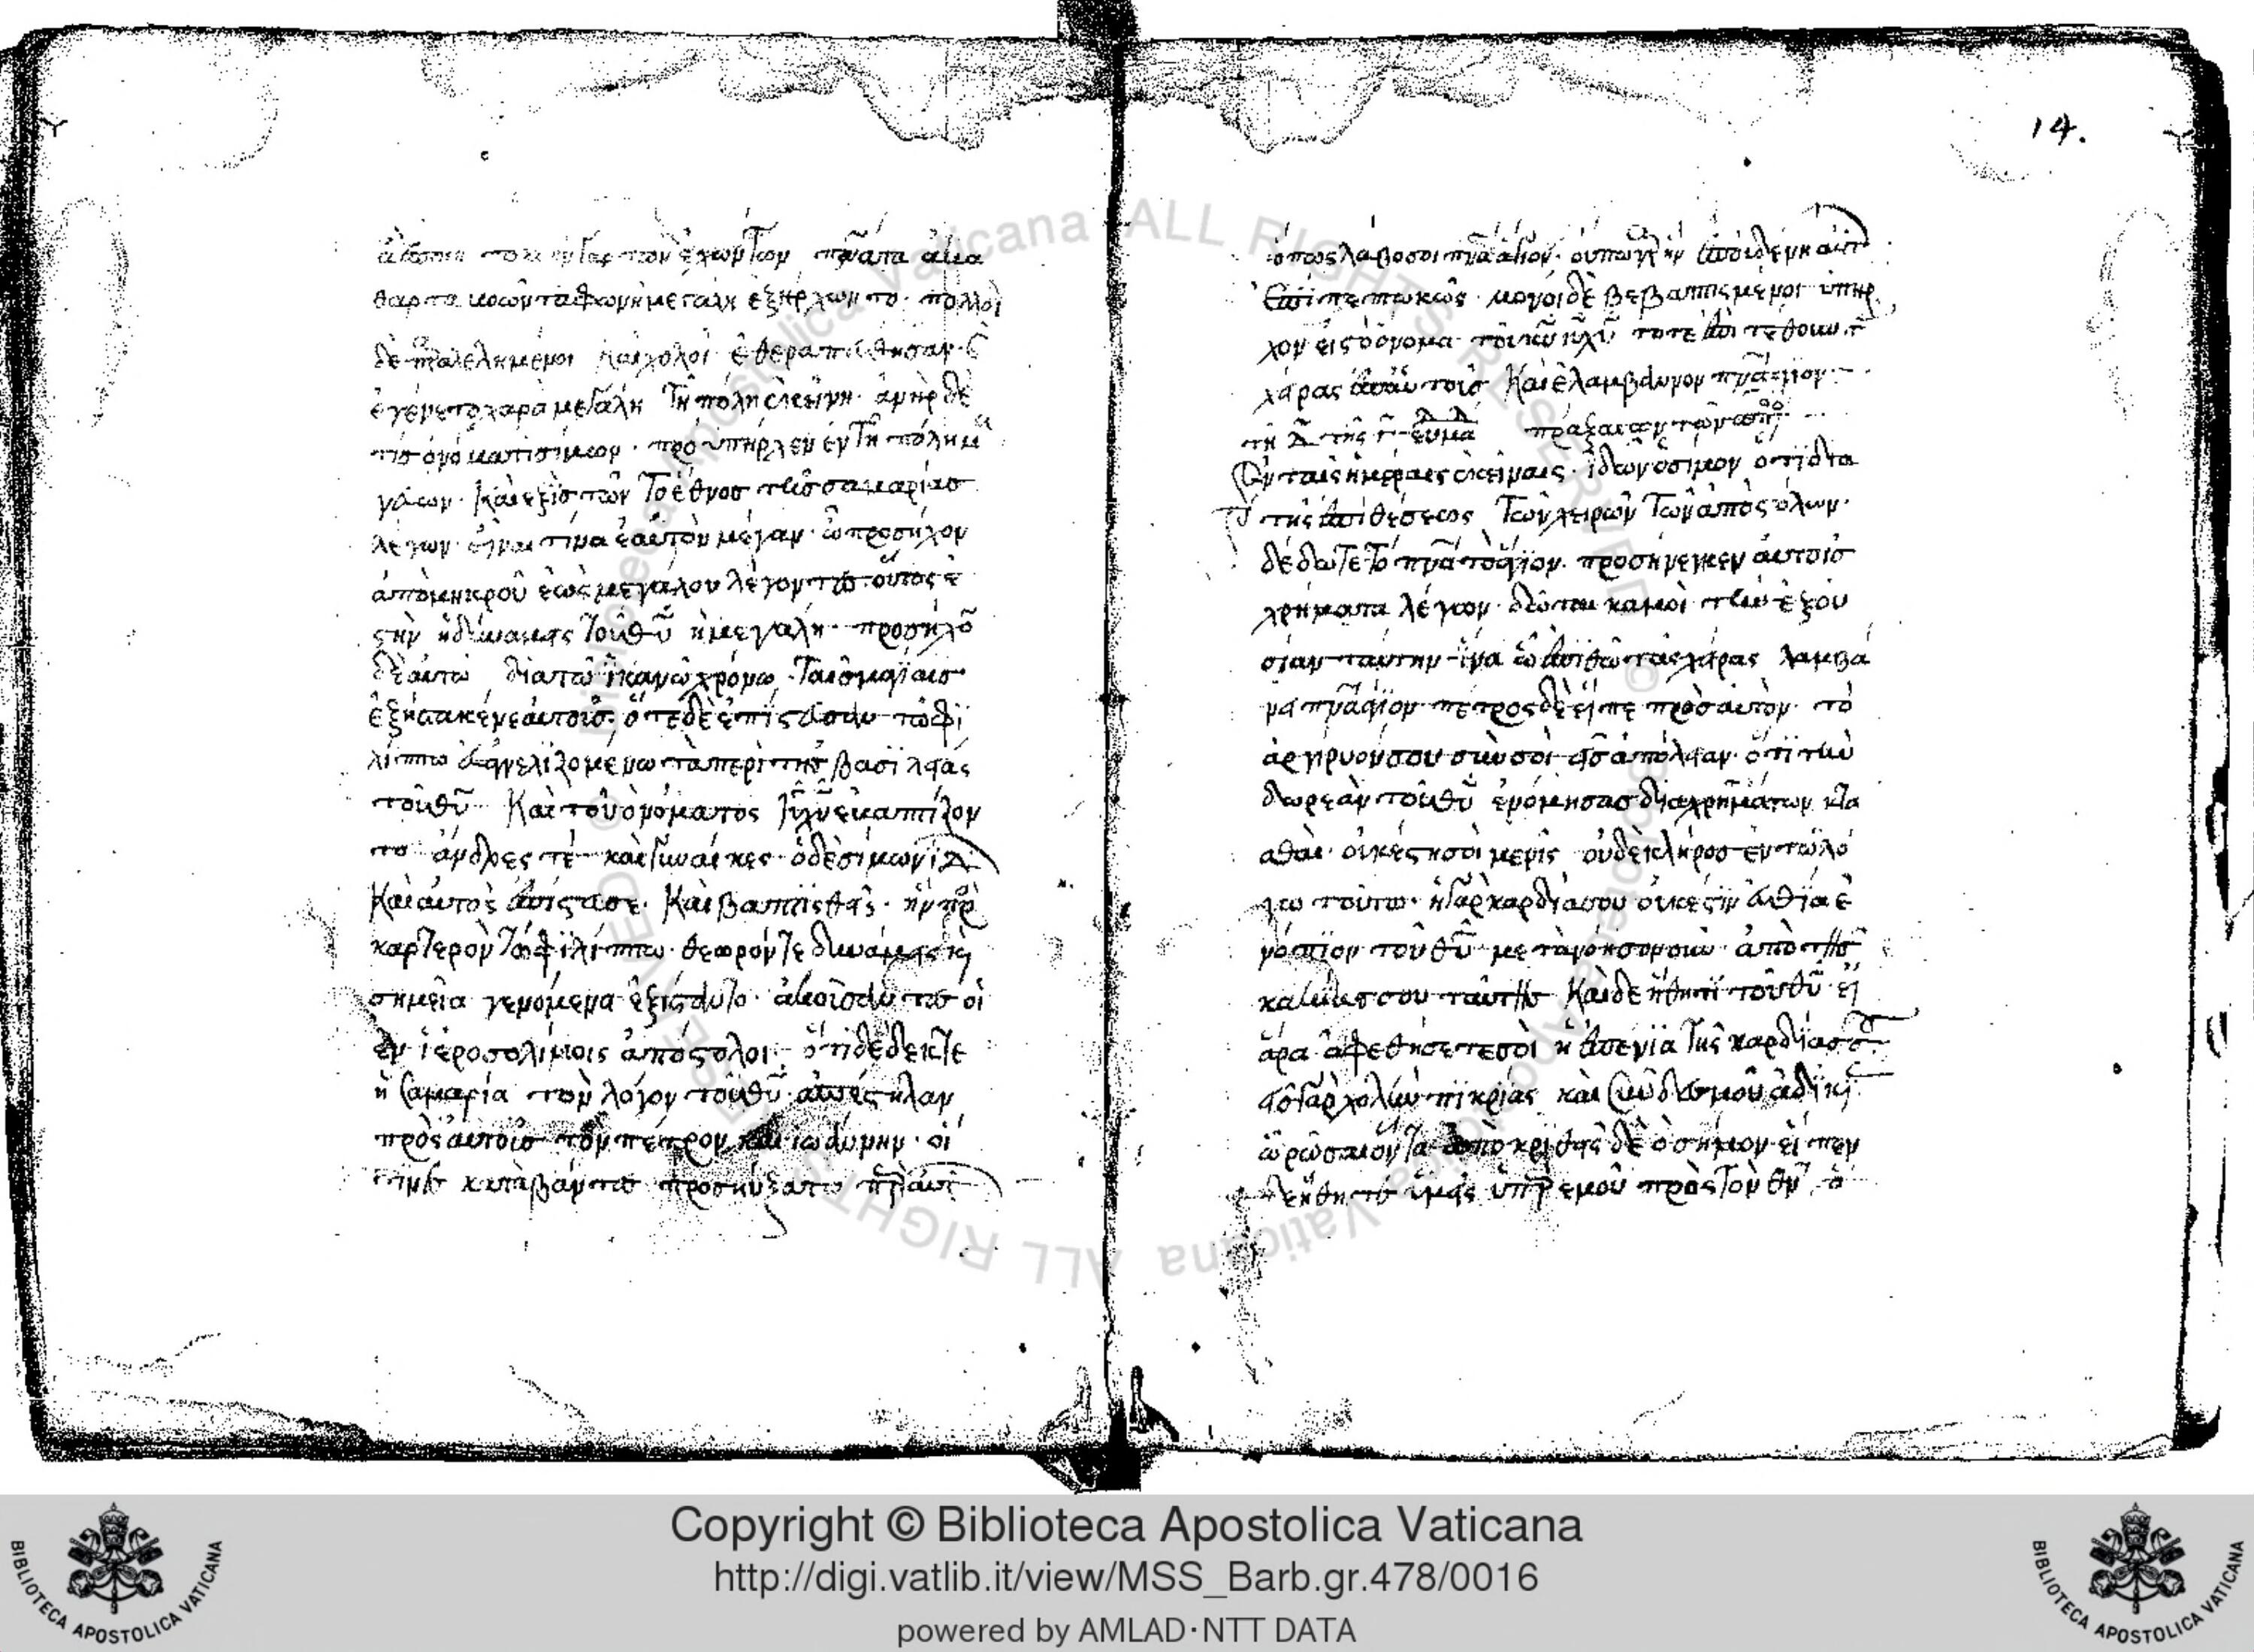 θαρτα βοῶντα φωνὴ μεγάλη ἐξήρχωντο· πολλοὶ
δὲ παλελημένοι καὶ χολοὶ ἐθεραπεύθησαν·
ἐγένετο χαρὰ μεγάλη τῆ πόλη ἐκείνη· ἀνὴρ δὲ
τὶς ὀνόματι σίμων· προϋπήρχεν ἐν τῆ πόλη μα
γεύων· καὶ ἐξιστῶν τὸ ἔθνος τῆς σαμαρίας
λέγων· εἶναι τίνα ἑαυτὸν μέγαν· ὧ προσήχον
ἀπὸ μηκροῦ ἑὼς μεγάλου λέγοντες οὗτος ἐ
στὴν ἡ δύναμις τοῦ θῦ ἡ μεγάλη· προσήχον
δὲ αὐτῶ διὰ τῶ ἱκανῶ χρόνω ταῖς μαγίαις
ἐξεστακέναι αὐτοὺς· ὅτε δὲ ἐπίστευσαν τῶ φι
λίππω εὐαγγελιζομένω τὰ περὶ τῆς βασιλείας
τοῦ θῦ καὶ τοῦ ὀνόματος ἰῦ χῦ ἐβαπτίζον
το ἄνδρες τὲ καὶ γυναίκες· ὁ δὲ σίμων
καὶ αὐτὸς ἐπίστευσε· καὶ βαπτισθεὶς· ἦν πρ
καρτερὸν τῶ φιλίππω· θεωρόντε δυνάμεις καὶ
σημεῖα γενόμενα ἐξίστατο· ἀκούσαντες οἱ
ἐν ἱεροσολύμοις ἀπόστολοι· ὅτι δέδεκτε
ἡ σαμαρία τὸν λόγον τοῦ θῦ ἀπέστηλαν
πρὸς αὐτοὺς τὸν πέτρον καὶ ἰωάννην· οἱ
τινὲς καταβάντες προσηύξαντο περὶ αὐτ
14.
ὅπως λάβοσοι πνᾶ ἅγιον· οὔπω γὰρ ἦν ἐπ οὐδένη αὐτ
ἐπιπεπτωκὼς· μόνοι δὲ βεβαπτισμένοι ὑπηρ
χον εἰς τὸ ὄνομα τοῦ κῦ ἰῦ χῦ τότε ἐπιτεθουν τ
χεῖρας ἐπ' αὐτοὺς καὶ ἐλάμβανον πνᾶ ἅγιον
τῆ δ τῆς γ ἑυμα πράξαιων τῶν ἀπο
Ἐν ταῖς ἡμέραις ἐκείναις· ἰδὼν ὁ σίμον ὅτι δια
τῆς ἐπιθέσεως τῶν χειρῶν τῶν ἀποστόλων·
δέδωτε τὸ πνᾶ τὸ ἅγιον· προσήνεγκεν αὐτοῖς
χρήματα λέγων· δῶτε καμοὶ τὴν ἐξου
σίαν ταύτην ἵνα ὧ ἐπιθῶ τὰς χεῖρας λαμβά
νει πνᾶ ἅγιον· πέτρος δὲ εἶπε πρὸς αὐτὸν· τὸ
ἀργύρυόν σου σὺν σοὶ εἰς ἀπόλειαν· ὅτι τὴν
δωρεὰν τοῦ θῦ ἐνόμησας διὰ χρημάτων κτα
σθαι· οὐκ ἔστη σοι μερὶς οὐδὲ κλήρος ἐν τῶ λό
γω τοῦτω· ἡ γὰρ καρδία σου οὐκ ἔστιν εὐθεῖα ἐ
νόπιον τοῦ θῦ· μετανόησον οὖν ἀπὸ τῆς
κακίας σου ταύτης καὶ δεήθητι τοῦ θῦ· εἰ
ἄρα ἀφεθήσετε σοὶ ἡ ἐπενία τῆς καρδίας σ
εἰς γὰρ χολὴν πικρίας καὶ συνδεσμον ἀδική
ὡρῶ σαι ὄντα· ἀποκριθεὶς δὲ ὁ σήμον εἶπεν
δεήθητε ὑμεῖς ὑπὲρ ἐμοῦ πρὸς τὸν θν ὁ
Copyright © Biblioteca Apostolica Vaticana
http://digi.vatlib.it/view/MSS_Barb.gr.478/0016
powered by AMLAD·NTT DATA
BIBLIOTECA APOSTOLICA VATICANA
BIBLIOTECA APOSTOLICA VATICANA